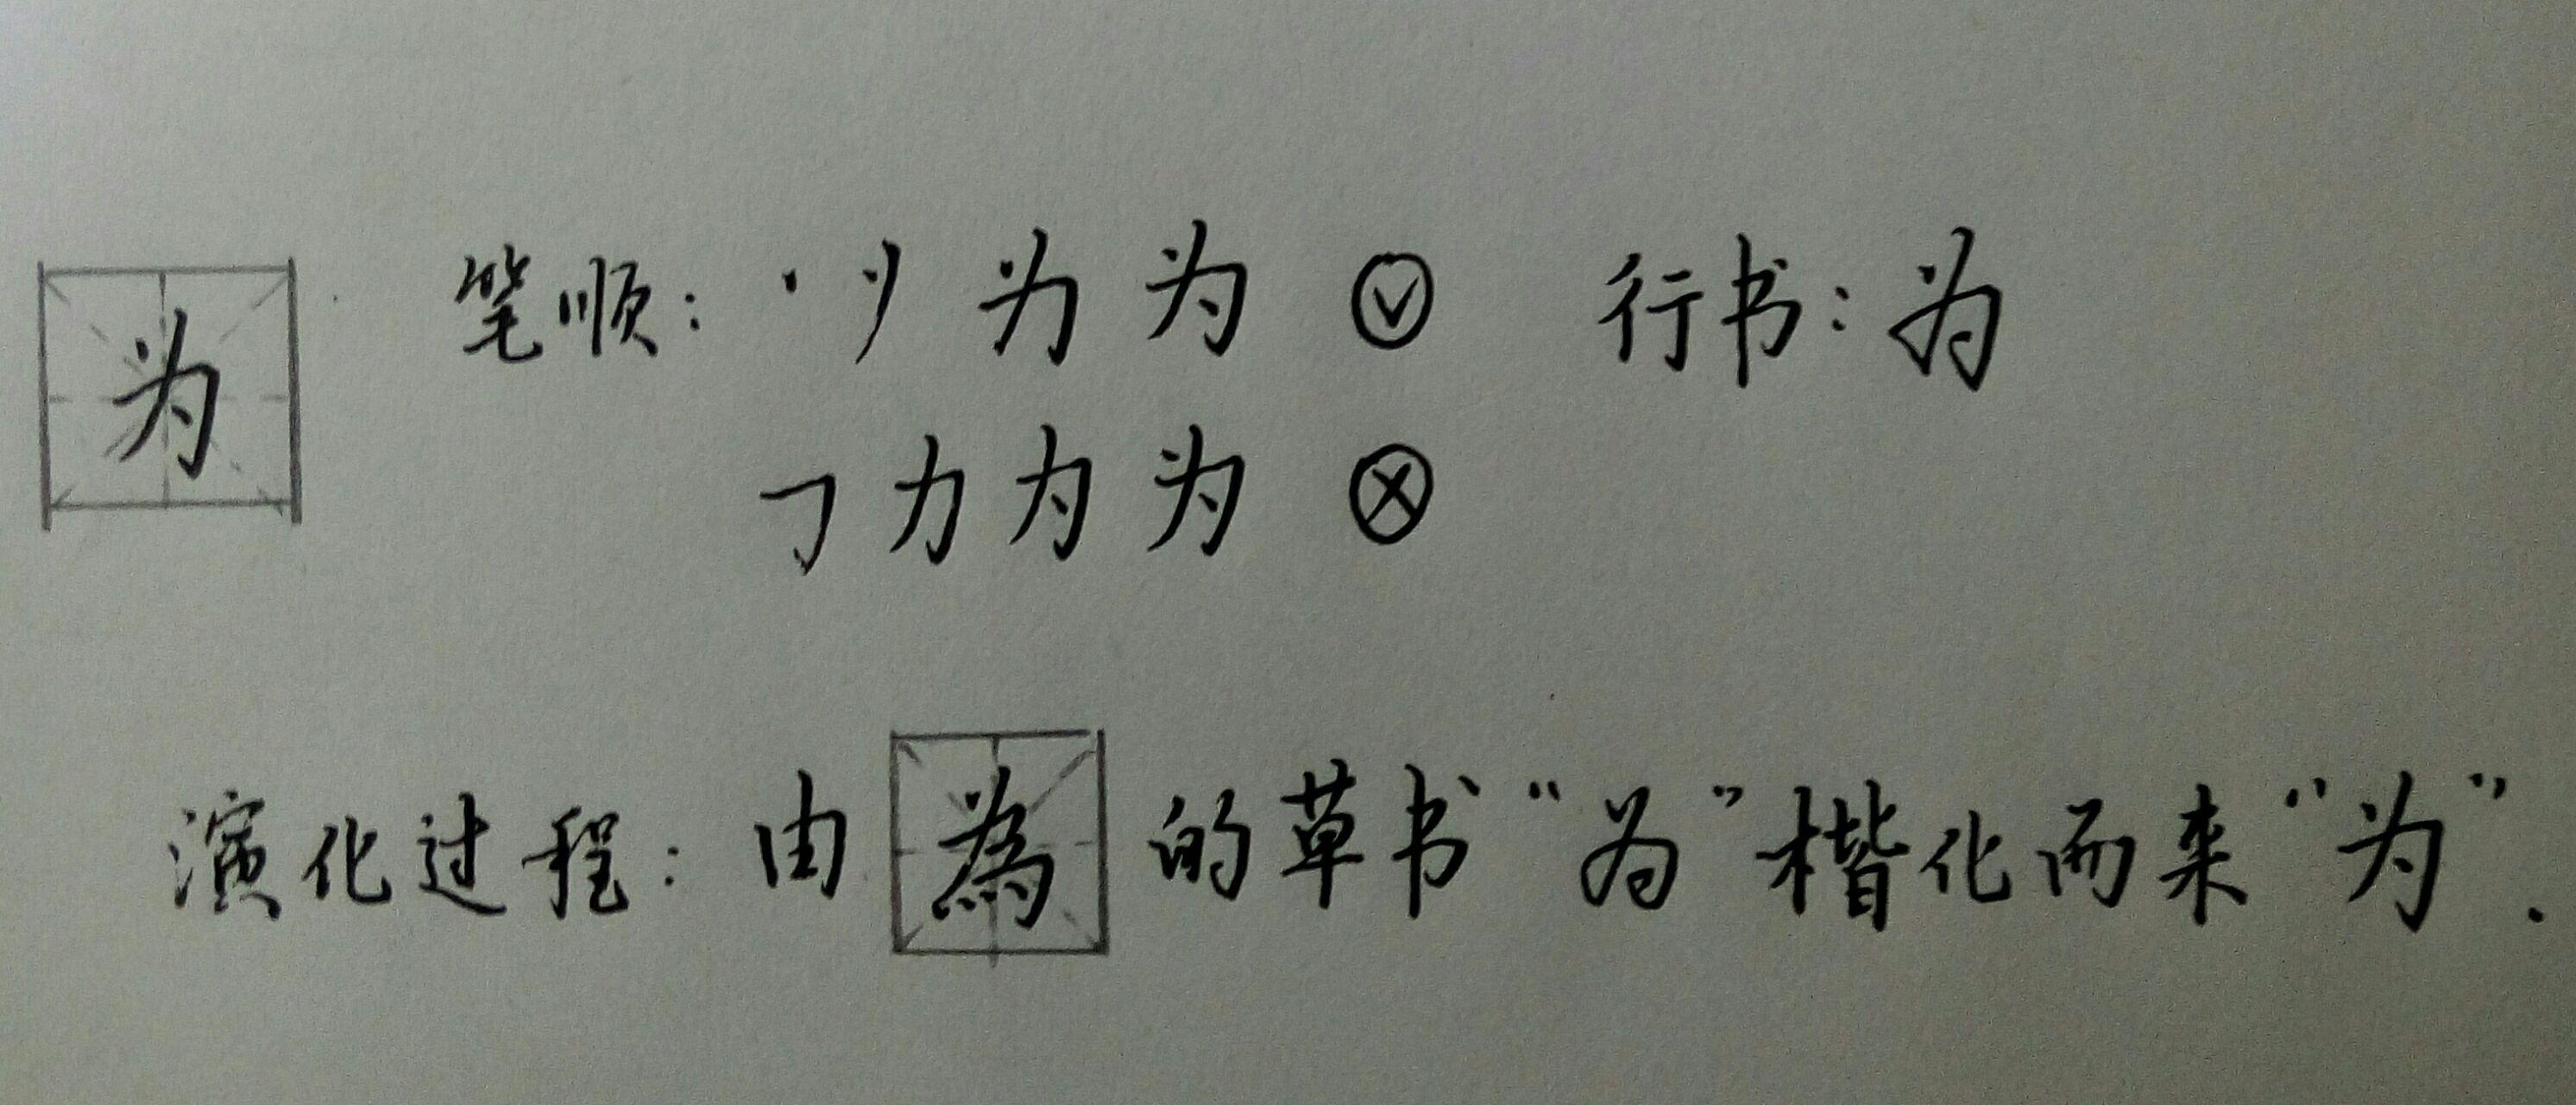 为 笔顺: 丶 丷 为 为 ✓ 行书: 为
㇆ 力 为 为 ✗
演化过程: 由 為 的草书“为”楷化而来“为”.